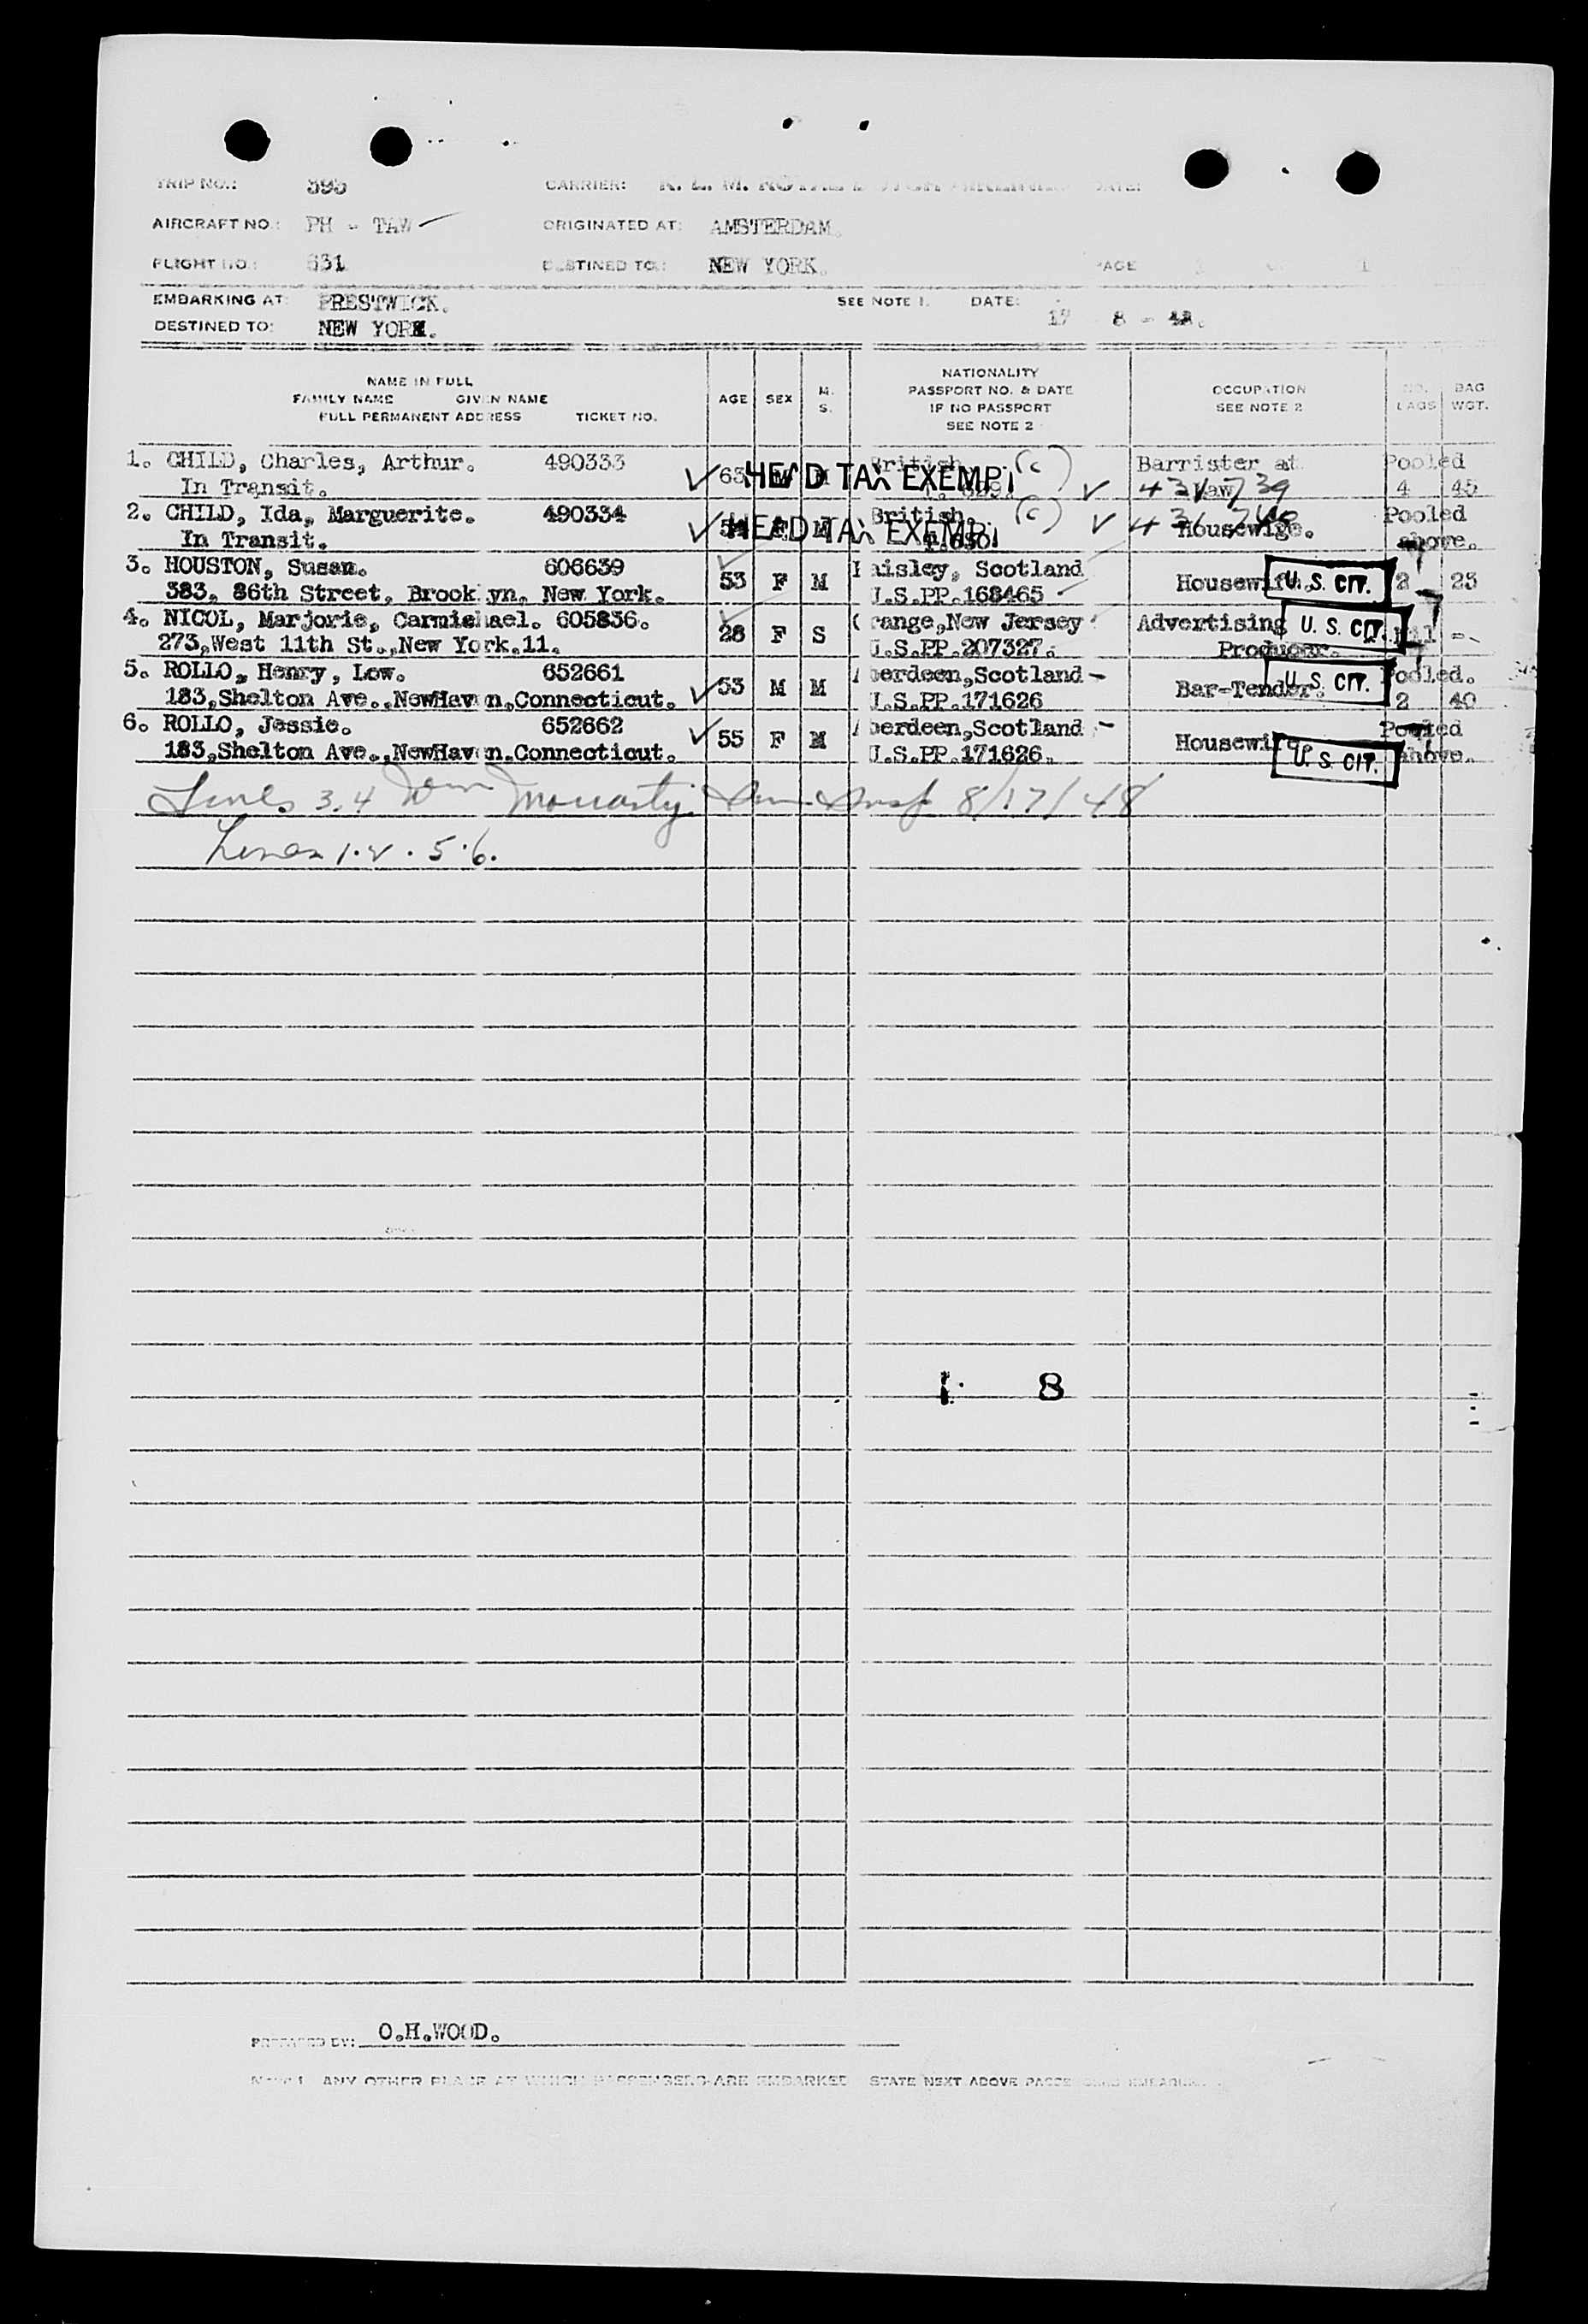 TRIP NO.: 395 CARRIER: K. L. M. ROYAL DUTCH AIRLINES DATE:
AIRCRAFT NO.: PH - TAW ORIGINATED AT: AMSTERDAM.
FLIGHT NO.: 631 DESTINED TO: NEW YORK. PAGE 1
EMBARKING AT: PRESTWICK. SEE NOTE 1. DATE: 17 - 8 - 48.
DESTINED TO: NEW YORK.
NAME IN FULL
FAMILY NAME GIVEN NAME
FULL PERMANENT ADDRESS TICKET NO.
AGE SEX M. S.
NATIONALITY
PASSPORT NO. & DATE
IF NO PASSPORT
SEE NOTE 2
OCCUPATION
SEE NOTE 2
NO. BAGS
BAG WGT.
1. CHILD, Charles, Arthur. 490333 British. (c) Barrister at Pooled
In Transit. HEAD TAX EXEMPT Law 4 45
2. CHILD, Ida, Marguerite. 490334 British. (c) Housewige. Pooled
In Transit. HEAD TAX EXEMPT above.
3. HOUSTON, Susan. 606639 53 F M Paisley, Scotland Housewife. U. S. CIT. 2 23
383, 86th Street, Brooklyn, New York. U.S.PP.168465
4. NICOL, Marjorie, Carmichael. 605836. 28 F S Orange,New Jersey Advertising U. S. CIT.
273,West 11th St.,New York.11. U.S.PP.207327. Producer. Nil -
5. ROLLO, Henry, Low. 652661 53 M M Aberdeen,Scotland Bar-Tender. U. S. CIT. Pooled.
183,Shelton Ave.,NewHaven,Connecticut. U.S.PP.171626 2 40
6. ROLLO, Jessie. 652662 55 F M Aberdeen,Scotland Housewife. U. S. CIT. Pooled
183,Shelton Ave.,NewHaven.Connecticut. U.S.PP.171626. above.
Lines 3.4 Wm Moriarty Imm Insp 8/17/48
Lines 1.2.5.6.
8
PREPARED BY: O.H.WOOD.
NOTE 1 ANY OTHER PLACE AT WHICH PASSENGERS ARE EMBARKED STATE NEXT ABOVE